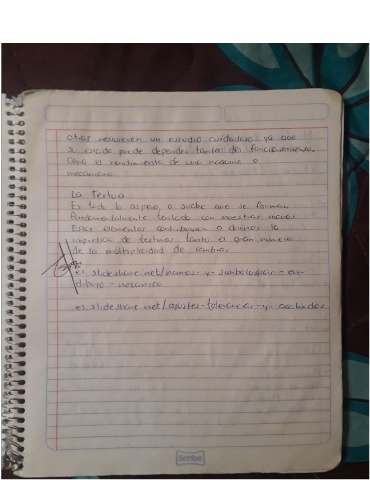 otras requieren un estudio cuidadoso ya que
se puede depender tanto del funcionamiento.
Como el rendimiento de una maquina o
mecanismo
La Textura
Es todo lo aspero o suabe que se forman
fundamentalmente tocado con nuestras manos.
Estos elementos contribuyen a darnos la
impresion de texturas tanto el gran numero
de la multiplicidad de sombras.
es. slideshare net/normas-y-simbologias-en-
dibujo-mecanico
es. slideshare net/ajustes-tolerancias-y-acabados
Scribe